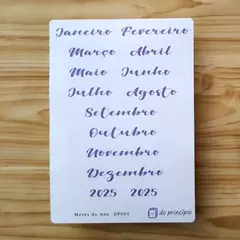 Janeiro Fevereiro
Março Abril
Maio Junho
Julho Agosto
Setembro
Outubro
Novembro
Dezembro
2025 2025
Meses do Ano DP001
do princípio